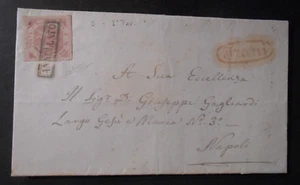 A Sua Eccellenza
Il Sigr. D. Giuseppe Gagliardi
Largo Gesù e Maria N.º 3º
Napoli